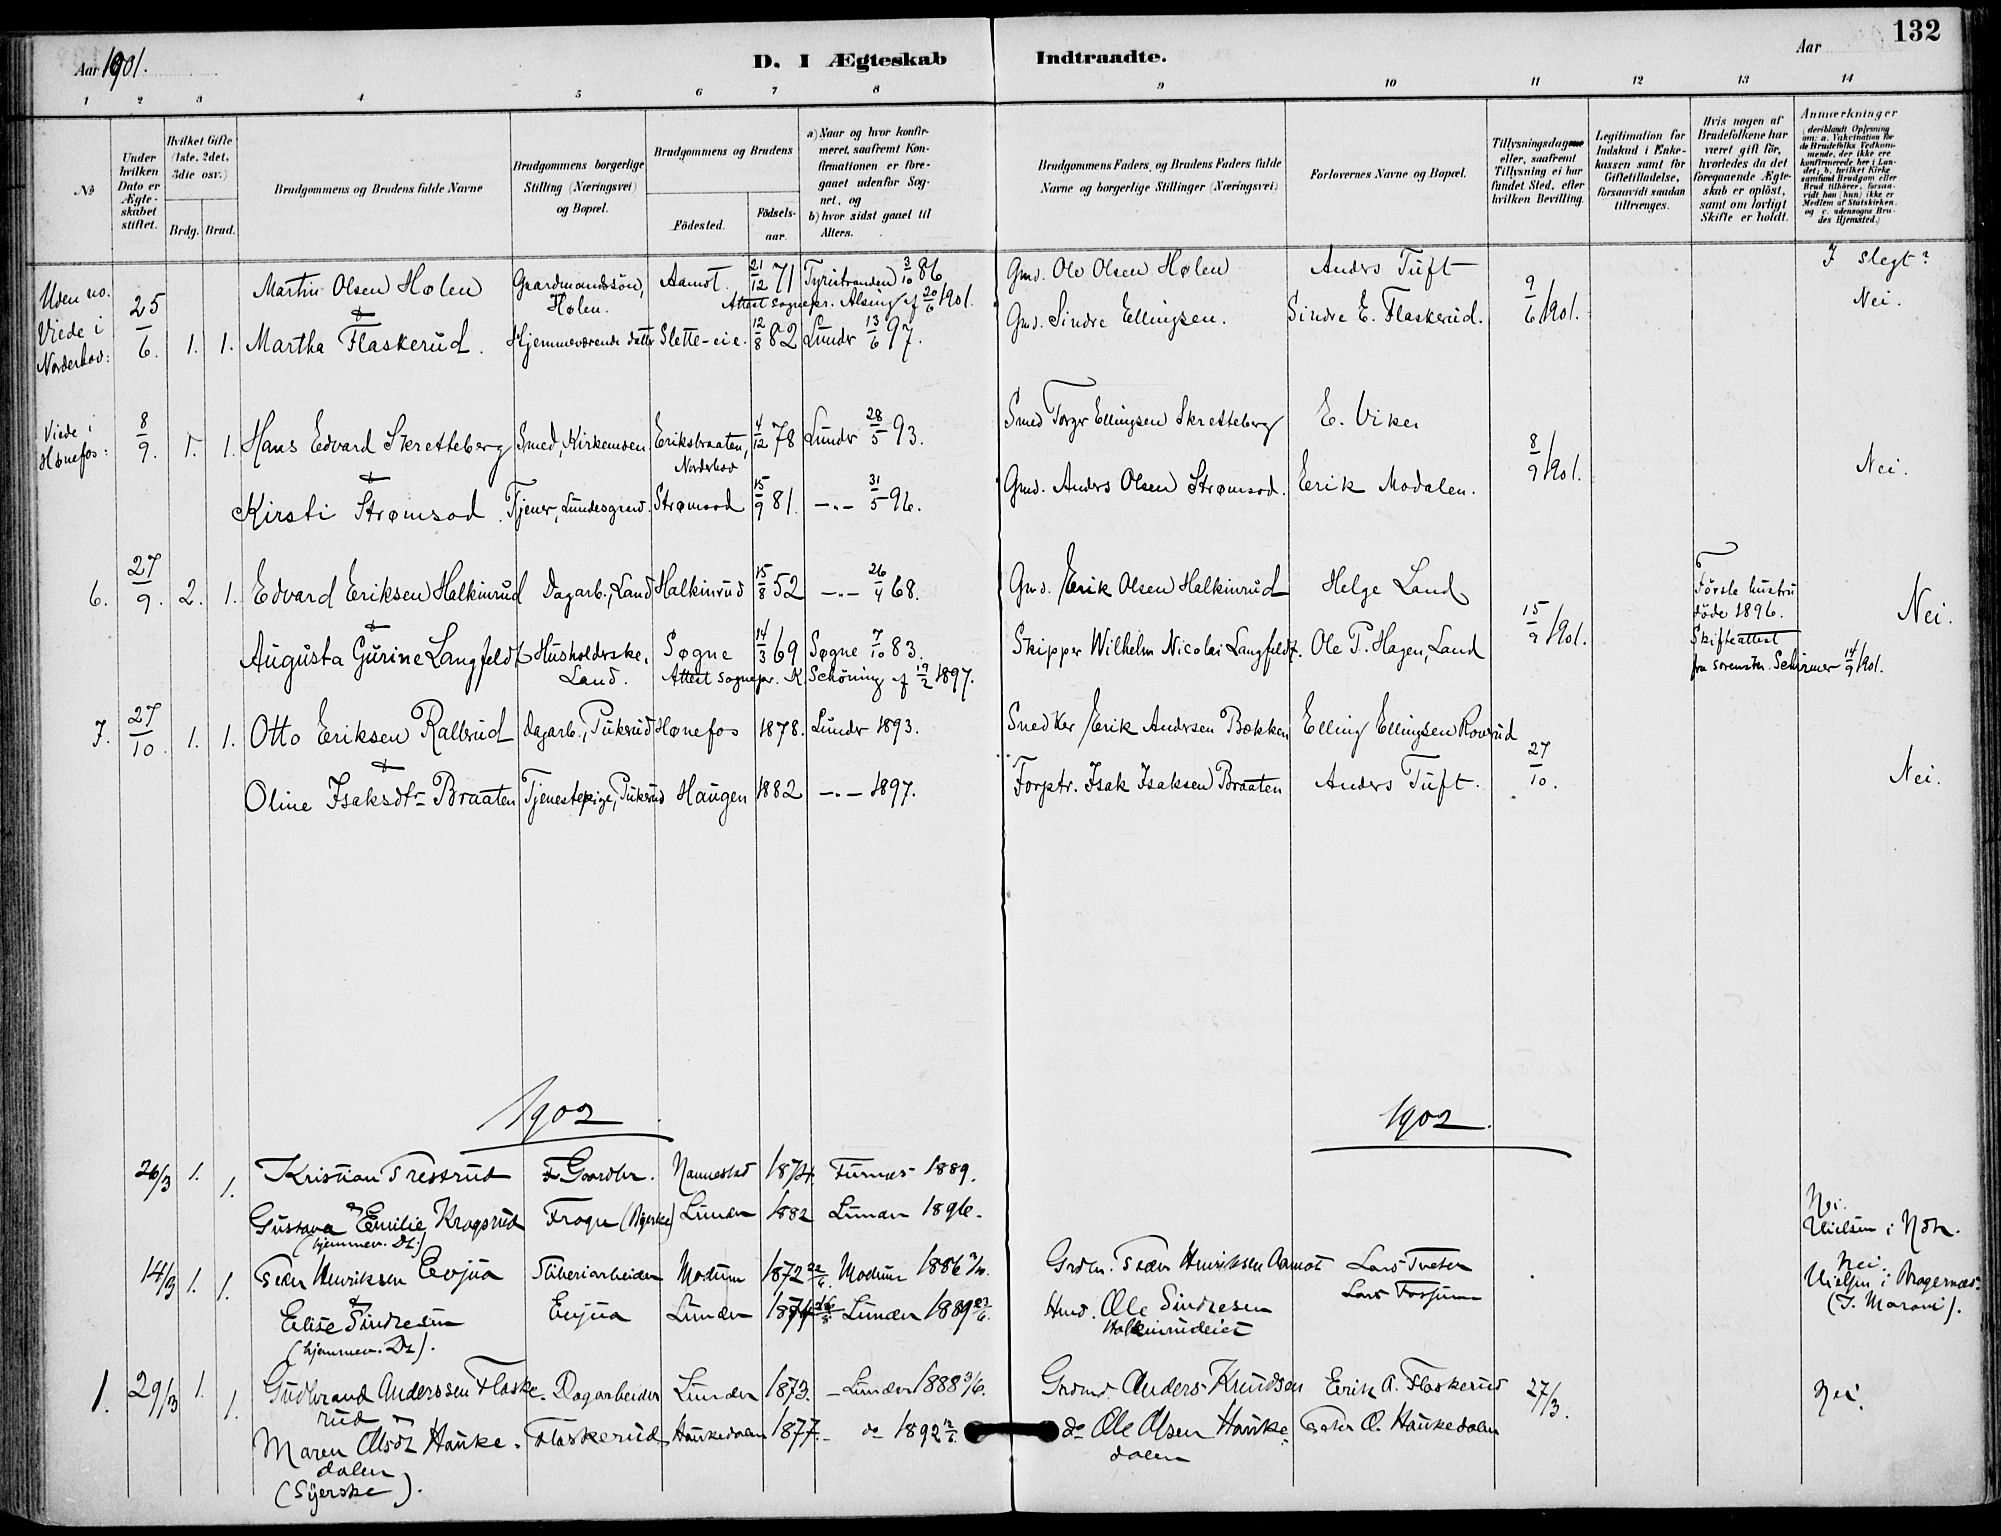 Aar 1901.
D. I Ægteskab Indtraadte.
Aar
132
1 2 3 4 5 6 7 8 9 10 11 12 13 14
No
Under hvilken Dato er Ægteskabet stiftet.
Hvilket Gifte (1ste, 2det, 3die osv.)
Brdg. Brud.
Brudgommens og Brudens fulde Navne
Brudgommens borgerlige Stilling (Næringsvei) og Bopæl.
Brudgommens og Brudens
Födested.
Födsels-aar.
a) Naar og hvor konfirmeret, saafremt Konfirmationen er foregaaet udenfor Sognet, og
b) hvor sidst gaaet til Alters.
Brudgommens Faders, og Brudens Faders fulde Navne og borgerlige Stillinger (Næringsvei)
Forlovernes Navne og Bopæl.
Tillysningsdagene eller, saafremt Tillysning ei har fundet Sted, efter hvilken Bevilling.
Legitimation for Indskud i Enkekassen samt for Giftetilladelse, forsaavidt saadan tiltrænges.
Hvis nogen af Brudefolkene har været gift för, hvorledes da det foregaaende Ægteskab er oplöst, samt om lovligt Skifte er holdt.
Anmærkninger
(deriblandt Oplysning om: a. Vakcination for de Brudefolks Vedkommende, der ikke ere konfirmerede her i Landet; b. hvilket Kirkesamfund Brudgom eller Brud tilhörer, forsaavidt han (hun) ikke er Medlem af Statskirken, og c. udensogns Brudes Hjemsted.)
Uden no. Viede i Norderhov: 25/6. 1. 1.
Martin Olsen Holen Gaardmandssön, Holen. Aamot. 21/12 71 Tyristranden 3/10 86
Attest sognepr. Alsing af 20/6 1901.
Gmd. Ole Olsen Hølen Anders Tuft
I slegt?
& Martha Flaskerud. Hjemmeværende datter Slette-eie. 12/8 82 Lunder 13/6 97.
Gmd. Sindre Ellingsen. Sindre E. Flaskerud. 9/6 1901. Nei.
Viede i Hønefos: 8/9. 1. 1.
Hans Edvard Skretteberg Smed, Kirkemoen Eriksbraaten, Norderhov 4/12 78 Lunder 28/5 93.
Smed Torger Ellingsen Skretteberg E. Viker 8/9 1901. Nei.
& Kirsti Strømsod. Tjener, Lundesgrend. Strømsod 15/9 81. -"- 31/5 96.
Gmd. Anders Olsen Strømsod. Erik Modalen.
6. 27/9. 2. 1. Edvard Eriksen Halkinrud Dagarb., Land Halkinrud 15/8 52 -"- 26/4 68.
Gmd. Erik Olsen Halkinrud Helge Land 15/9 1901.
Første hustru døde 1896. Skifteattest fra sorenskr. Schirmer 14/9 1901.
Nei.
& Augusta Gurine Langfeldt Husholderske, Land. Søgne 14/3 69 Søgne 7/10 83.
Attest sognepr. K. Schöning af 19/2 1897.
Skipper Wilhelm Nicolai Langfeldt. Ole P. Hagen, Land
7. 27/10. 1. 1. Otto Eriksen Ralbrud Dagarb., Pukerud Hønefos 1878. Lunder 1893.
Snedker Erik Andersen Bækken Elling Ellingsen Roverud 27/10. Nei.
& Oline Isaksdtr Braaten Tjenestepige, Pukerud Haugen 1882 -"- 1897.
Forptr. Isak Isaksen Braaten Anders Tuft.
1902 1902.
26/3 1. 1. Kristian Trestrud Gaardbr. Nannestad 1874 Furnes 1889.
& Gustava Emilie Krogsrud (hjemmev. Dt.) Frogn Lunder 1882 Lunder 1896.
Nei. Vielsen i
14/3 1. 1. Peder Henriksen Evjua Sliberiarbeider Modum 1872 Modum 1886
Grdm. Peder Henriksen Aamot Lars Tveten
Nei. Vielsen i Bragernæs.
& Elise Sindresen (hjemmev. Dt). Evjua Lunder 1874 Lunder 1889
Hmd. Ole Sindresen Halkinrudeiet Lars
1. 29/3 1. 1. Gudbrand Anderssen Flaskerud Dagarbeider Lunder 1873. - Lunder 1888
Grdmd. Anders Knudsen Erik A. Flaskerud 27/3. Nei.
& Maren Olsdt Haukedalen (Syerske). Flaskerud Haukedalen 1877. - do 1892
do Ole Olsen Haukedalen Peder O. Haukedalen